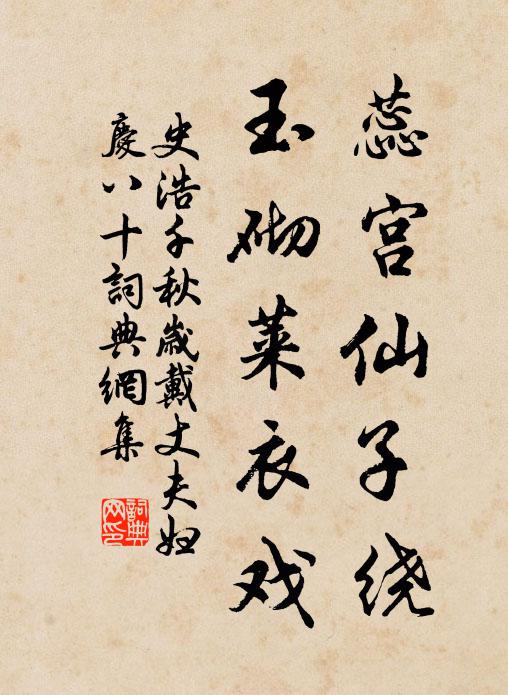 蕊宫仙子绕
玉砌莱衣戏
史浩千秋歲戴丈夫妇
慶八十詞典網集
詞典
网印